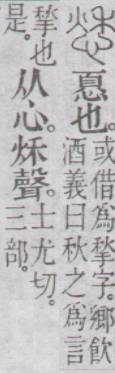 𢝊也。或借為揫字。鄉飲
酒義曰秋之為言
揫也
是。
从心。秌聲。士尤切。
三部。